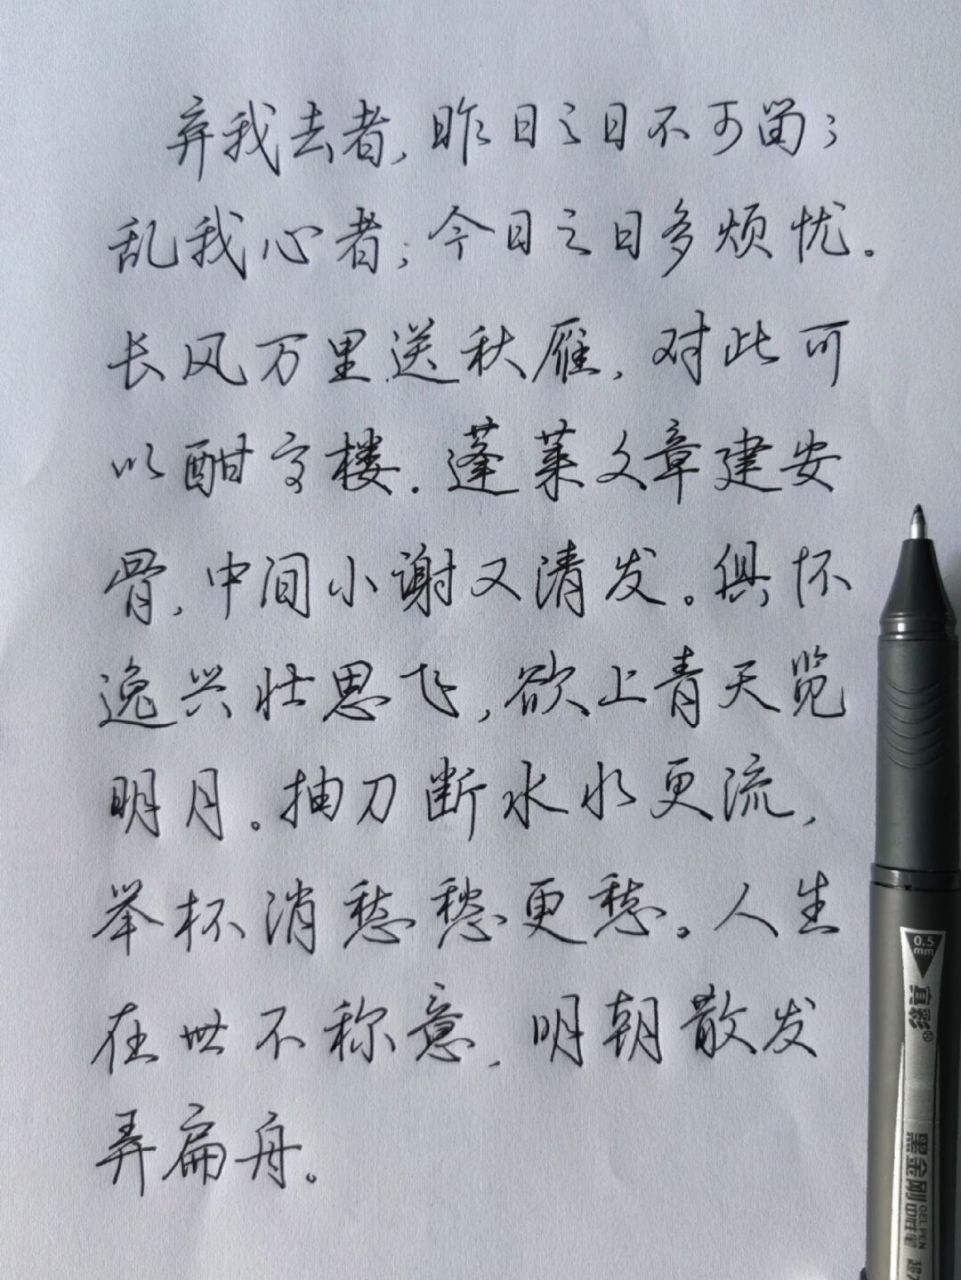 弃我去者,昨日之日不可留;
乱我心者;今日之日多烦忧。
长风万里送秋雁,对此可
以酣高楼.蓬莱文章建安
骨,中间小谢又清发。俱怀
逸兴壮思飞,欲上青天览
明月。抽刀断水水更流,
举杯消愁愁更愁。人生
在世不称意,明朝散发
弄扁舟。
0.5
mm
真彩®
黑金刚
GEL PEN